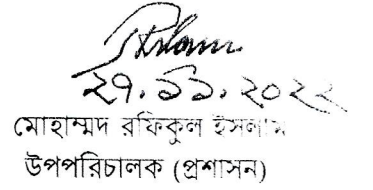 ২৭.১১.২০২২
মোহাম্মদ রফিকুল ইসলাম
উপপরিচালক (প্রশাসন)